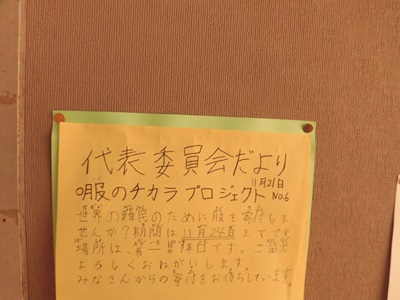 代表委員会だより
服のチカラプロジェクト
11月21日
No.6
世界の難民のために服を寄付しま
せんか?期間は11月24日までです。
場所は、第二昇降口です。ご協力
よろしくおねがいします。
みなさんからの寄付をお待ちしています。